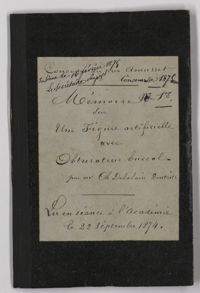 Concours
février 1875
Concours 1875
Mémoire N° 18.
sur
Une Figure artificielle
avec
Obturateur buccal
par mr Ch Delalain Dentiste
Lu en séance à l'Académie
le 22 Septembre 1874.